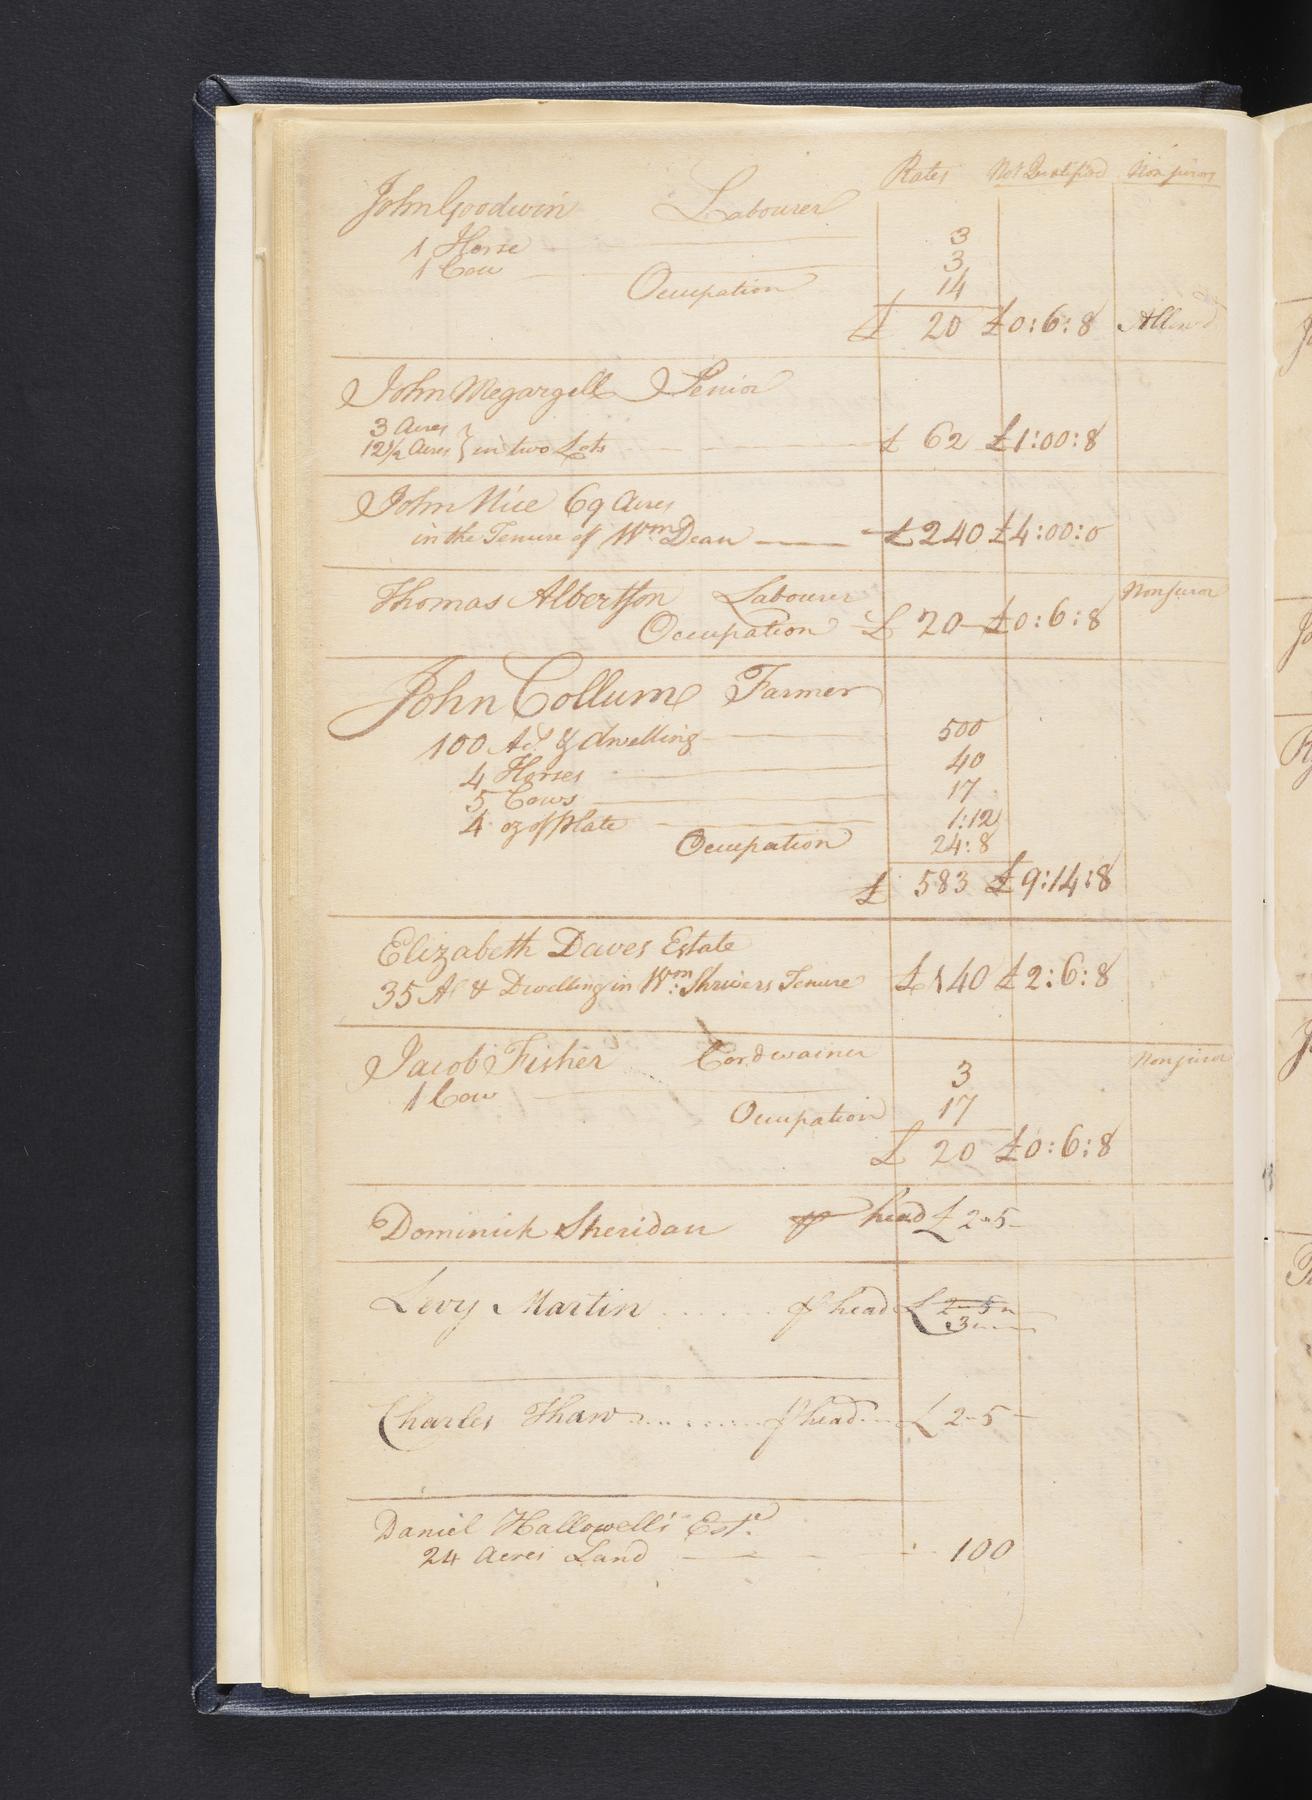 Rates Not Qualified Non juror
John Goodwin Labourer
1 Horse 3
1 Cow 3
Occupation 14
£ 20 £0:6:8 Allow'd
John Megargell Senior
3 Acres
12½ Acres } in two Lots £ 62 £1:00:8
John Nice 69 Acres
in the Tenure of Wm Dean £240 £4:00:0
Thomas Albertson Labourer Nonjuror
Occupation £ 20 £0:6:8
John Collum Farmer
100 Ac.s & dwelling 500
4 Horses 40
5 Cows 17
4 oz of Plate 1:12
Occupation 24:8
£ 583 £9:14:8
Elizabeth Daves Estate
35 Ac & Dwelling in Wm: Shrivers Tenure £140 £2:6:8
Jacob Fisher Cordwainer Nonjuror
1 Cow 3
Occupation 17
£ 20 £0:6:8
Dominick Sheridan head £ 2-5-
Levy Martin head £ 2-5
3
Charles Thaw head £ 2-5-
Daniel Hallowell's Est.e
24 Acres Land 100